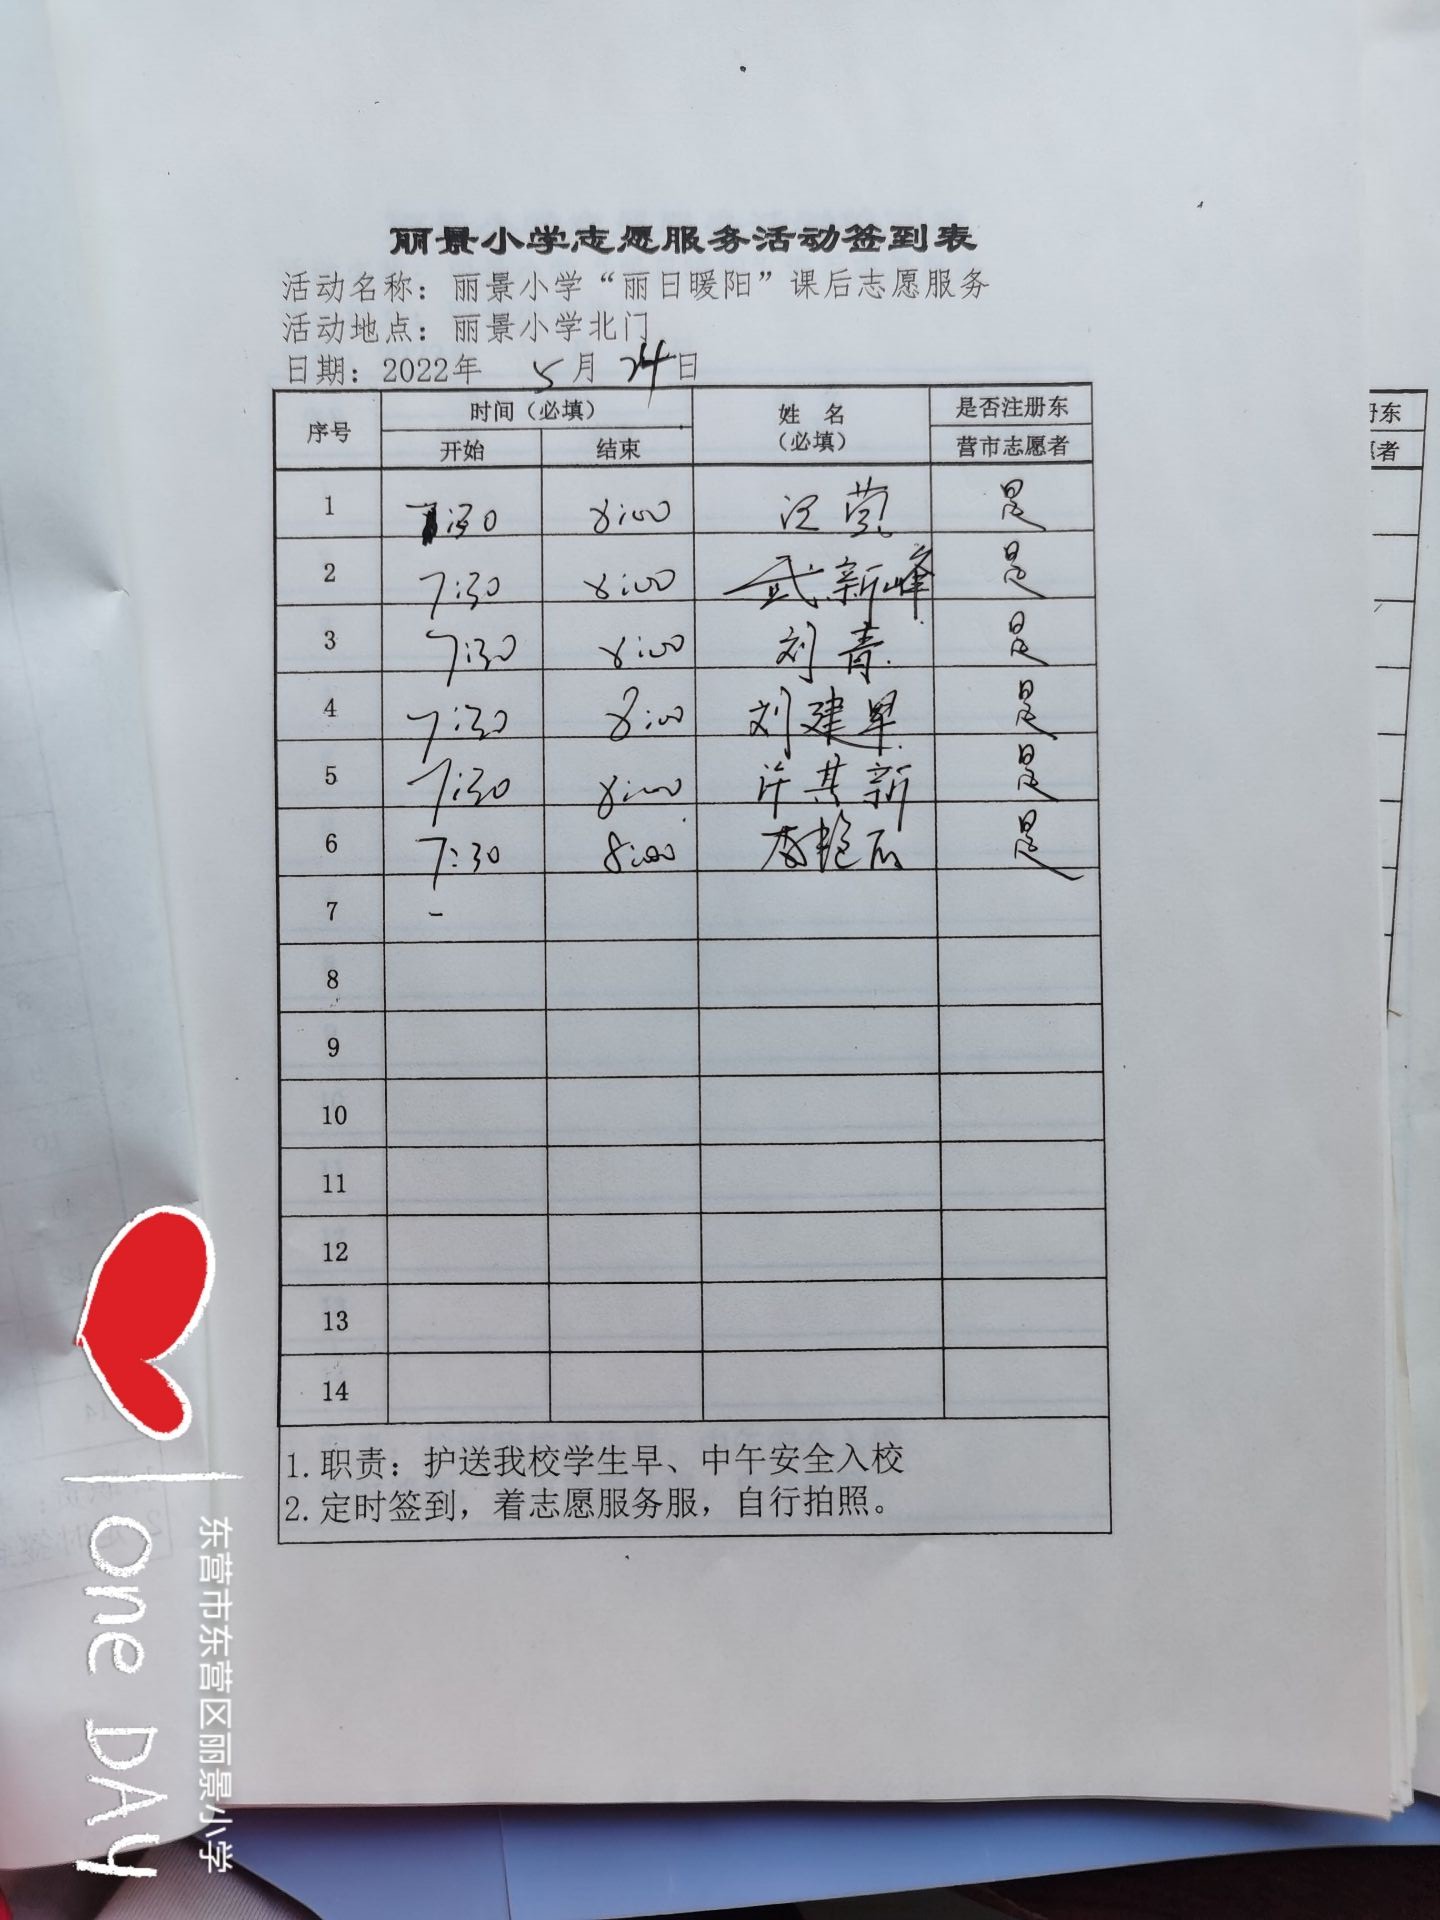 丽景小学志愿服务活动签到表
活动名称：丽景小学“丽日暖阳”课后志愿服务
活动地点：丽景小学北门
日期：2022年 5月 24日
序号 时间（必填） 姓 名（必填） 是否注册东营市志愿者
开始 结束
1 7:30 8:00 是
2 7:30 8:00 武新峰 是
3 7:30 8:00 刘青 是
4 7:30 8:00 刘建 是
5 7:30 8:00 许其新 是
6 7:30 8:00 是
7 -
8
9
10
11
12
13
14
1.职责：护送我校学生早、中午安全入校
2.定时签到，着志愿服务服，自行拍照。
one DAY
东营市东营区丽景小学
册东
愿者